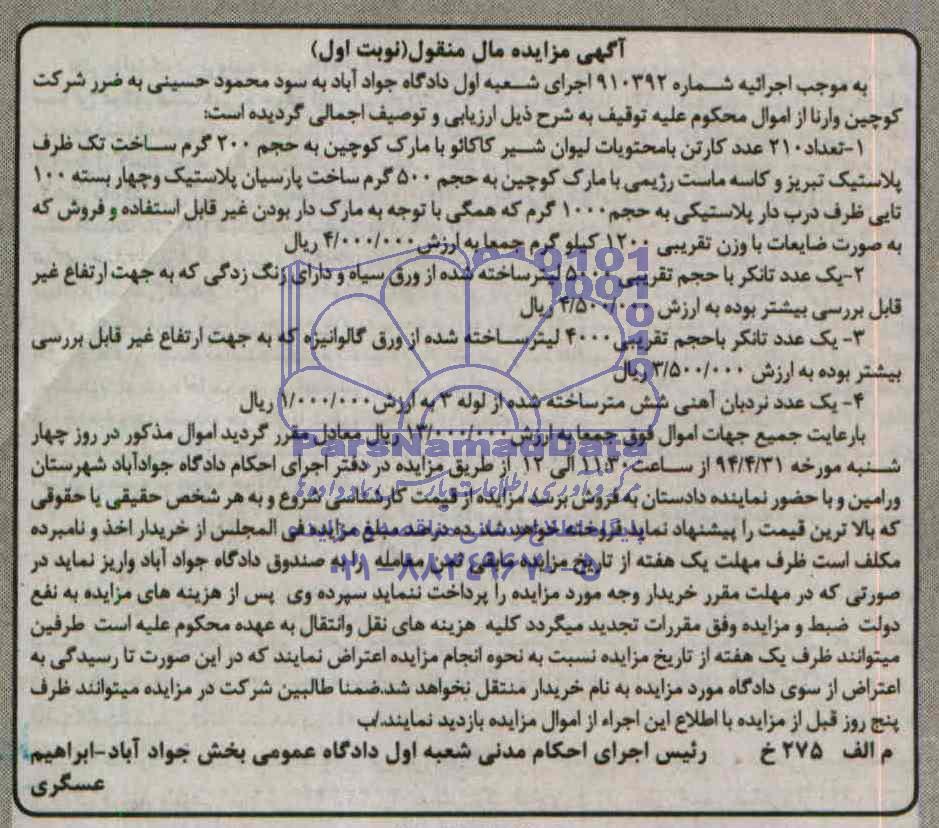 آگهی مزایده مال منقول(نوبت اول)
به موجب اجرائیه شماره ۹۱۰۳۹۲ اجرای شعبه اول دادگاه جواد آباد به سود محمود حسینی به ضرر شرکت
کوچین وارنا از اموال محکوم علیه توقیف به شرح ذیل ارزیابی و توصیف اجمالی گردیده است:
۱-تعداد۲۱۰ عدد کارتن بامحتویات لیوان شیر کاکائو با مارک کوچین به حجم ۲۰۰ گرم ساخت تک ظرف
پلاستیک تبریز و کاسه ماست رژیمی با مارک کوچین به حجم ۵۰۰ گرم ساخت پارسیان پلاستیک وچهار بسته ۱۰۰
تایی ظرف درب دار پلاستیکی به حجم۱۰۰۰ گرم که همگی با توجه به مارک دار بودن غیر قابل استفاده و فروش که
به صورت ضایعات با وزن تقریبی ۱۲۰۰ کیلو گرم جمعا به ارزش ۴/۰۰۰/۰۰۰ ریال
۲-یک عدد تانکر با حجم تقریبی ۵۰۰۰ لیترساخته شده از ورق سیاه و دارای زنگ زدگی که به جهت ارتفاع غیر
قابل بررسی بیشتر بوده به ارزش ۴/۵۰۰/۰۰۰ ریال
۳- یک عدد تانکر باحجم تقریبی ۴۰۰۰ لیترساخته شده از ورق گالوانیزه که به جهت ارتفاع غیر قابل بررسی
بیشتر بوده به ارزش ۳/۵۰۰/۰۰۰ ریال
۴- یک عدد نردبان آهنی شش مترساخته شده از لوله ۳ به ارزش ۱/۰۰۰/۰۰۰ ریال
بارعایت جمیع جهات اموال فوق جمعا به ارزش ۱۳/۰۰۰/۰۰۰ ریال معادل مقرر گردید اموال مذکور در روز چهار
شنبه مورخه ۹۴/۴/۳۱ از ساعت ۱۱:۳۰ الی ۱۲ از طریق مزایده در دفتر اجرای احکام دادگاه جوادآباد شهرستان
ورامین و با حضور نماینده دادستان به فروش برسد مزایده از قیمت کارشناسی شروع و به هر شخص حقیقی یا حقوقی
که بالا ترین قیمت را پیشنهاد نماید فروخته خواهد شد. ده درصد مبلغ مزایده فی المجلس از خریدار اخذ و نامبرده
مکلف است ظرف مهلت یک هفته از تاریخ مزایده مابقی ثمن معامله را به صندوق دادگاه جواد آباد واریز نماید در
صورتی که در مهلت مقرر خریدار وجه مورد مزایده را پرداخت ننماید سپرده وی پس از هزینه های مزایده به نفع
دولت ضبط و مزایده وفق مقررات تجدید میگردد کلیه هزینه های نقل وانتقال به عهده محکوم علیه است طرفین
میتوانند ظرف یک هفته از تاریخ مزایده نسبت به نحوه انجام مزایده اعتراض نمایند که در این صورت تا رسیدگی به
اعتراض از سوی دادگاه مورد مزایده به نام خریدار منتقل نخواهد شد.ضمنا طالبین شرکت در مزایده میتوانند ظرف
پنج روز قبل از مزایده با اطلاع این اجراء از اموال مزایده بازدید نمایند./ب
م الف ۲۷۵ خ رئیس اجرای احکام مدنی شعبه اول دادگاه عمومی بخش جواد آباد-ابراهیم
عسگری
ParsNamadData
۰۲۱-۸۸۳۴۹۶۷۰-۵